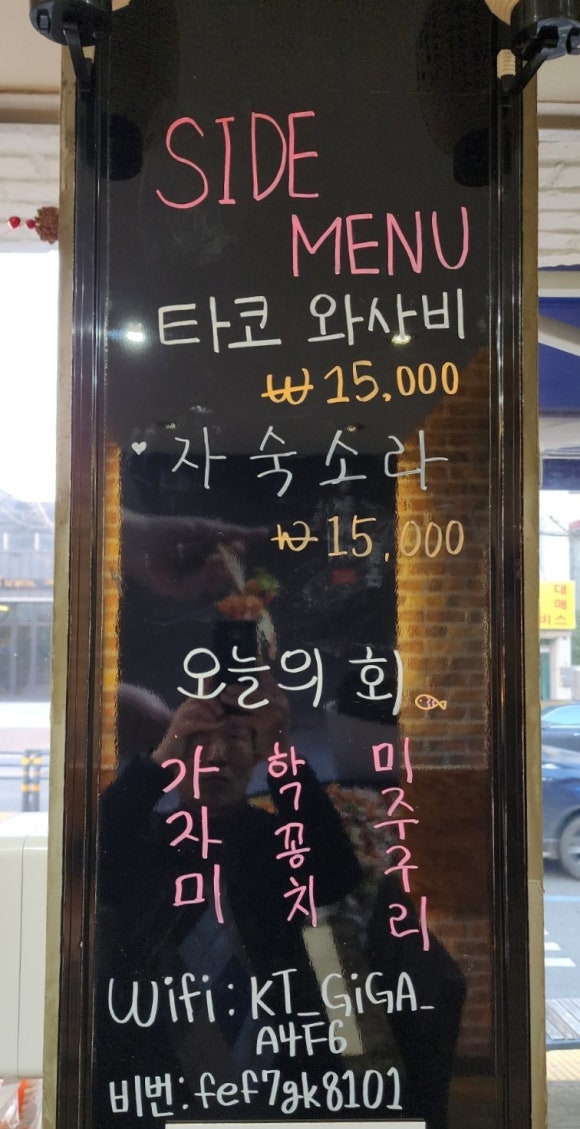 SIDE
MENU
타코 와사비
₩15,000
자숙소라
₩15,000
오늘의 회
가자미
학꽁치
미주구리
Wifi: KT_GiGA_
A4F6
비번: fef7gk8101
대
매
비스